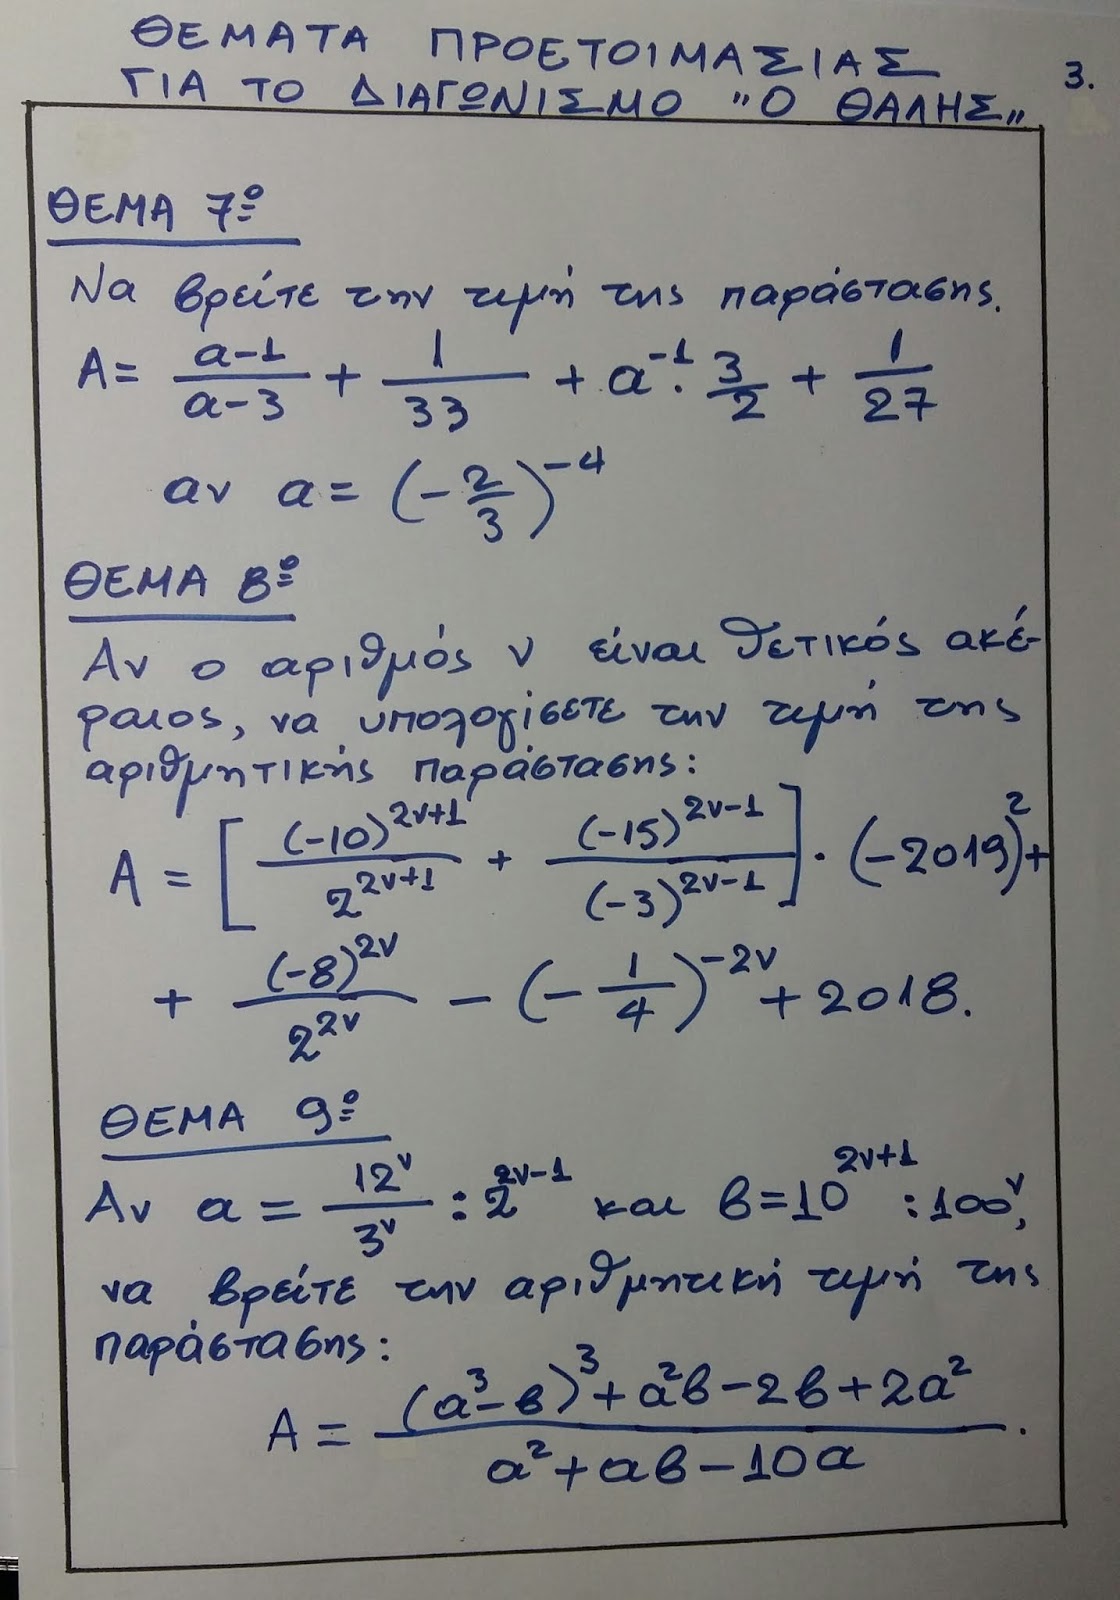 ΘΕΜΑΤΑ ΠΡΟΕΤΟΙΜΑΣΙΑΣ
ΓΙΑ ΤΟ ΔΙΑΓΩΝΙΣΜΟ "Ο ΘΑΛΗΣ„
3.
ΘΕΜΑ 7º
Να βρείτε την τιμή της παράστασης.
A = \frac{a-1}{a-3} + \frac{1}{33} + a^{-1} · \frac{3}{2} + \frac{1}{27}
αν a = (-\frac{2}{3})^{-4}
ΘΕΜΑ 8º
Αν ο αριθμός ν είναι θετικός ακέ-
ραιος, να υπολογίσετε την τιμή της
αριθμητικής παράστασης:
A = [\frac{(-10)^{2ν+1}}{2^{2ν+1}} + \frac{(-15)^{2ν-1}}{(-3)^{2ν-1}}] · (-2019)^2 +
+ \frac{(-8)^{2ν}}{2^{2ν}} - (-\frac{1}{4})^{-2ν} + 2018.
ΘΕΜΑ 9º
Αν a = \frac{12^ν}{3^ν} : 2^{2ν-1} και β = 10^{2ν+1} : 100^ν,
να βρείτε την αριθμητική τιμή της
παράστασης:
A = \frac{(a^3-β)^3 + a^2β - 2β + 2a^2}{a^2 + aβ - 10a}.